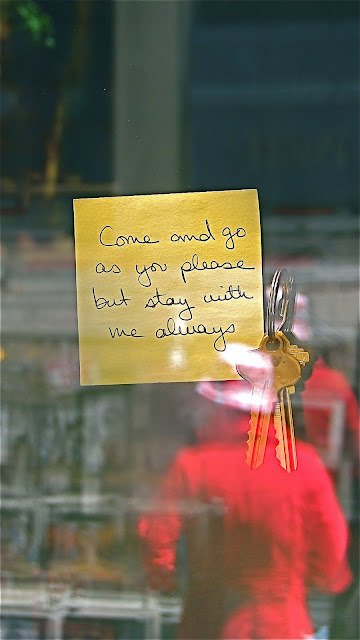 Come and go
as you please
but stay with
me always